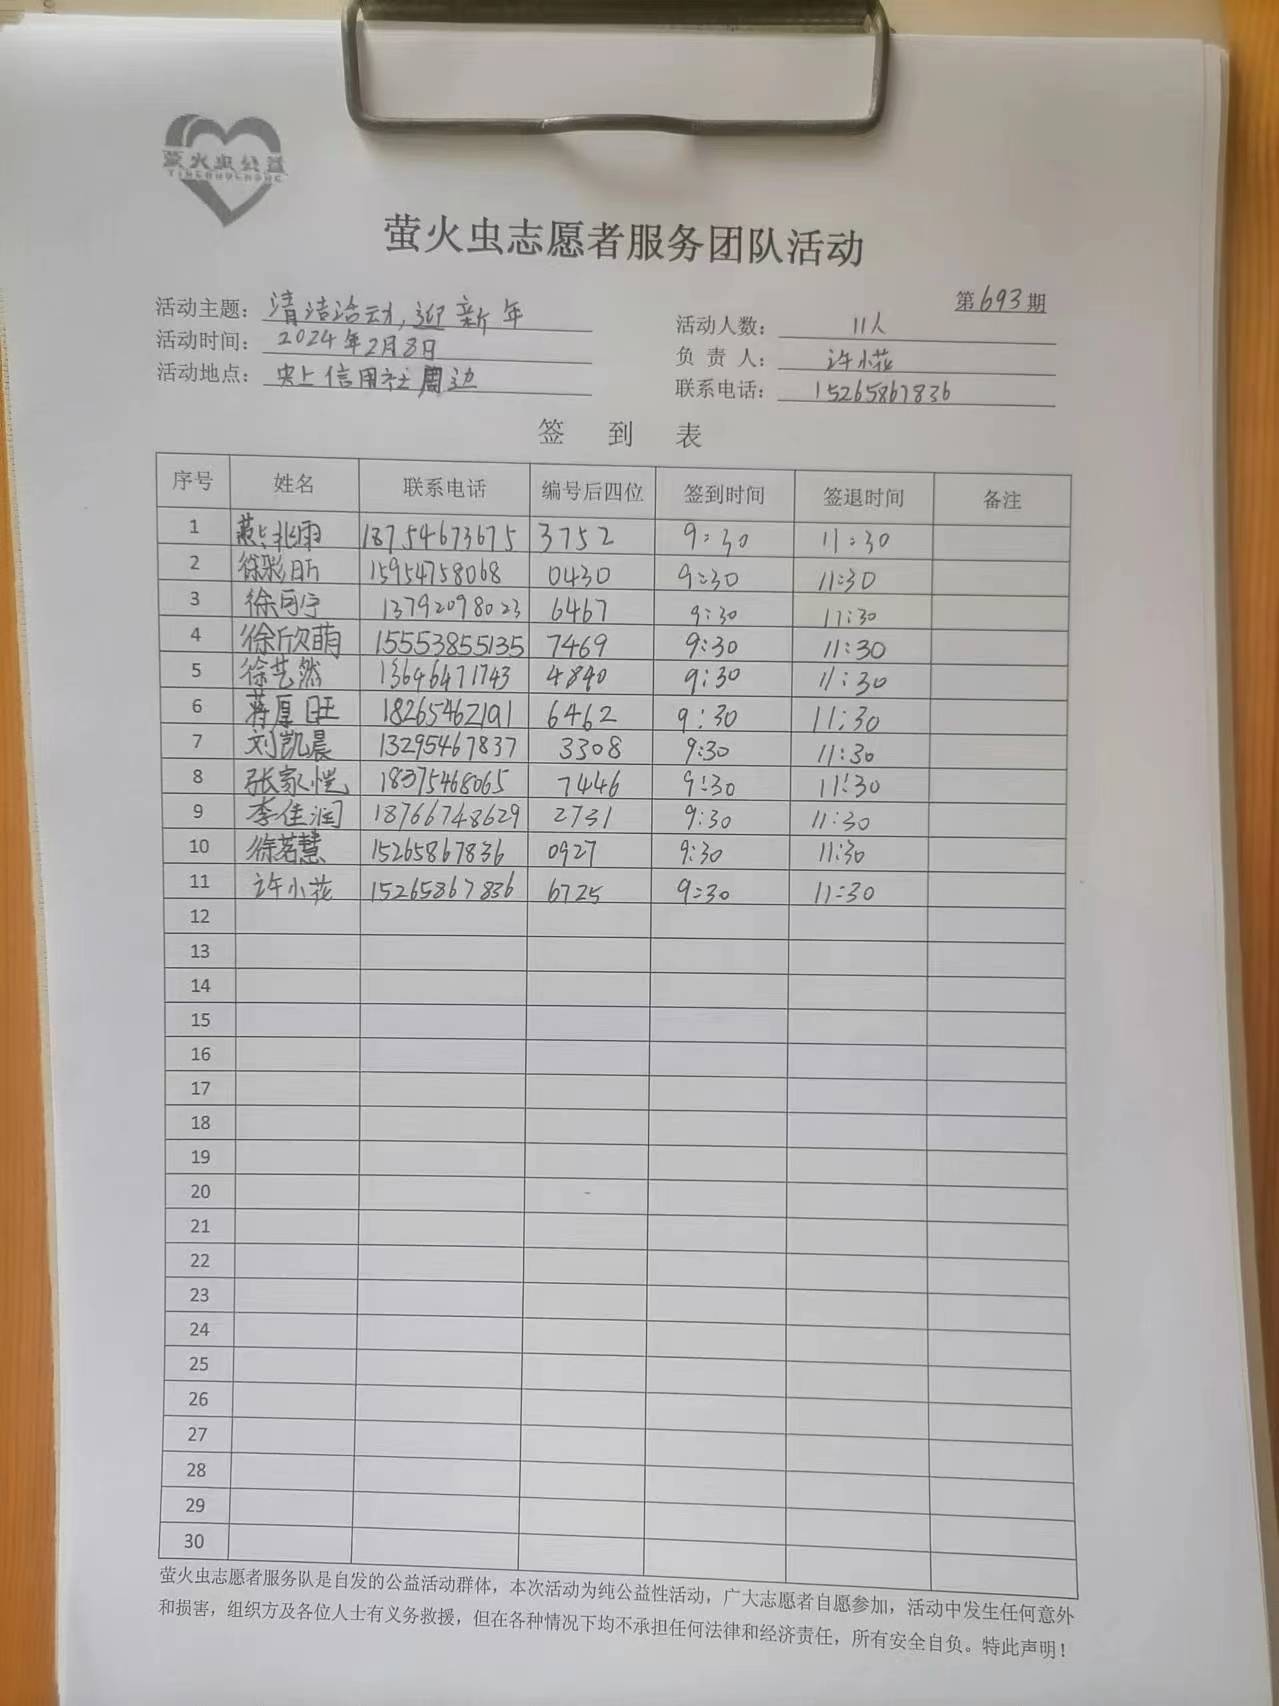 萤火虫公益
YINGHUOCHONG
萤火虫志愿者服务团队活动
第693期
活动主题：清洁活动，迎新年
活动人数：11人
活动时间：2024年2月8日
负 责 人：许小花
活动地点：史上信用社周边
联系电话：15265867836
签 到 表
序号 姓名 联系电话 编号后四位 签到时间 签退时间 备注
1 燕兆雨 18754673675 3752 9:30 11:30
2 徐彩昕 15954758068 0430 9:30 11:30
3 徐可宁 13792098023 6467 9:30 11:30
4 徐欣萌 15553855135 7469 9:30 11:30
5 徐艺然 13646471743 4840 9:30 11:30
6 蒋厚旺 18265462191 6462 9:30 11:30
7 刘凯晨 13295467837 3308 9:30 11:30
8 张家恺 18375468065 7446 9:30 11:30
9 李佳润 18766748629 2731 9:30 11:30
10 徐茗慧 15265867836 0927 9:30 11:30
11 许小花 15265867836 6725 9:30 11:30
12
13
14
15
16
17
18
19
20
21
22
23
24
25
26
27
28
29
30
萤火虫志愿者服务队是自发的公益活动群体，本次活动为纯公益性活动，广大志愿者自愿参加，活动中发生任何意外
和损害，组织方及各位人士有义务救援，但在各种情况下均不承担任何法律和经济责任，所有安全自负。特此声明！